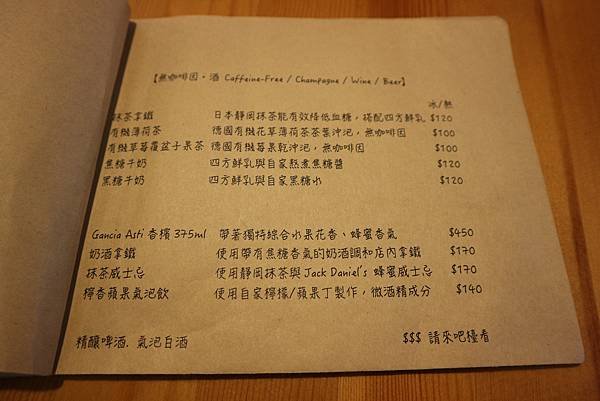 【無咖啡因・酒 Caffeine-Free / Champagne / Wine / Beer】
冰/熱
抹茶拿鐵 日本靜岡抹茶能有效降低血糖，搭配四方鮮乳 $120
有機薄荷茶 德國有機花草薄荷茶茶葉沖泡，無咖啡因 $100
有機草莓覆盆子果茶 德國有機莓果乾沖泡，無咖啡因 $100
焦糖牛奶 四方鮮乳與自家熬煮焦糖醬 $120
黑糖牛奶 四方鮮乳與自家黑糖水 $120
Gancia Asti 香檳 375ml 帶著獨特綜合水果花香、蜂蜜香氣 $450
奶酒拿鐵 使用帶有焦糖香氣的奶酒調和店內拿鐵 $170
抹茶威士忌 使用靜岡抹茶與 Jack Daniel's 蜂蜜威士忌 $170
檸香蘋果氣泡飲 使用自家檸檬/蘋果丁製作，微酒精成分 $140
精釀啤酒. 氣泡白酒 $$$ 請來吧檯看